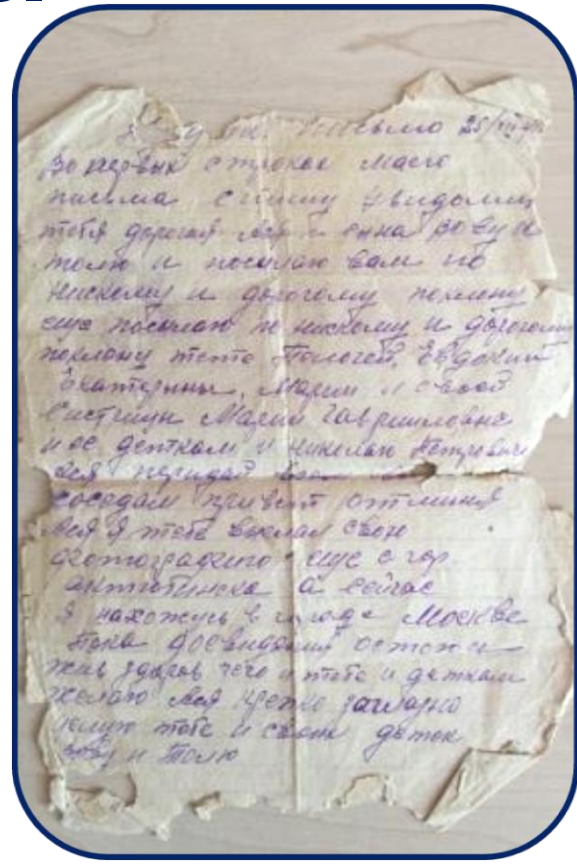 письмо 25/VIII-41
Во первых строках маего
письма спишу уведомить
тебя дорогая жена Вову и
толю и посылаю вам по
нискому и дорогому поклону
еще посылаю по нискому и дорогому
поклону тете Пологеи, Евдокии
Екатерины, Марии и своей
систрицы Марии Гавриловне
и ее деткам и Николаю Петровичу
ася перидай
соседам привет отминя
Ася я тебе выслал свою
фотографию еще с гор.
актюбинска а сейчас
я нахожусь в городе Москве
пока досвидания остаюсь
жив здоров чего и тебе и деткам
желаю Ася крепко заглазно
целую тебе и своих деток
вову и Толю